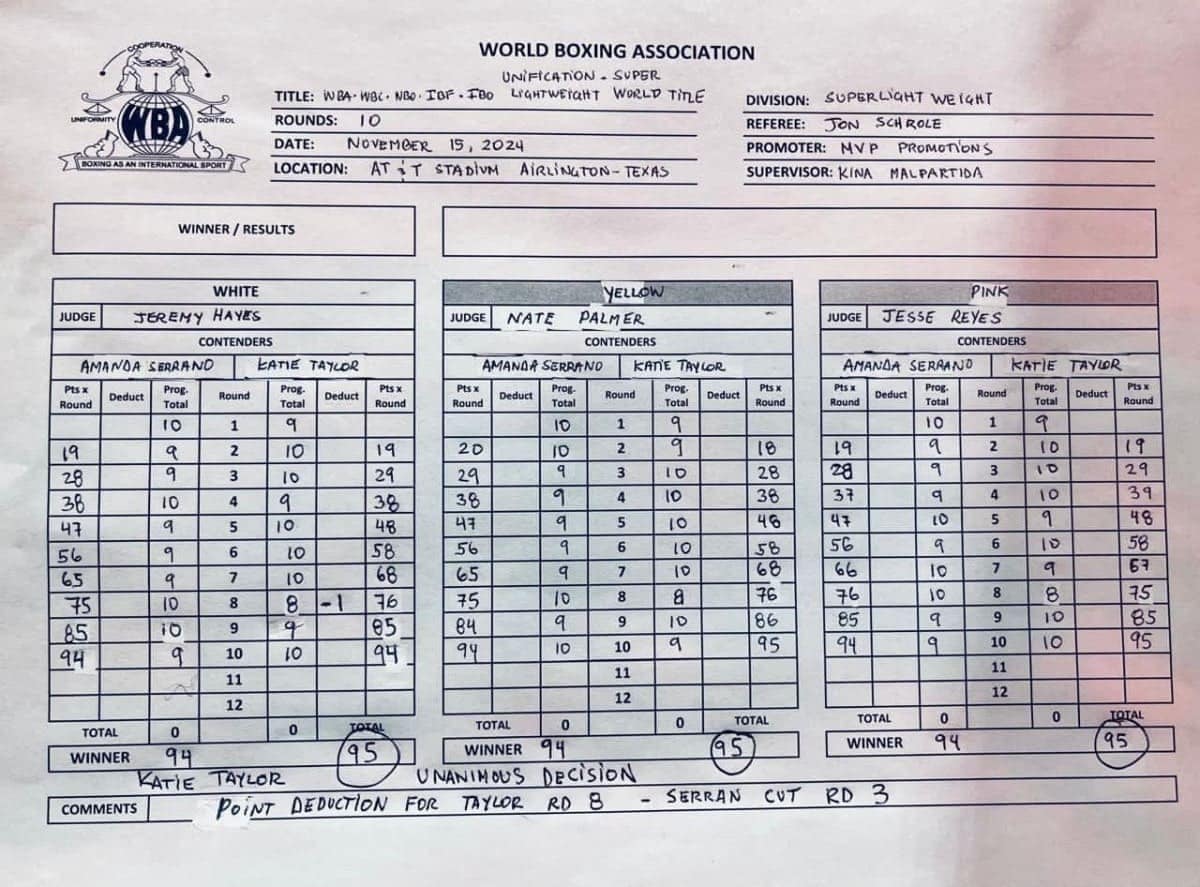 COOPERATION
UNIFORMITY WBA CONTROL
BOXING AS AN INTERNATIONAL SPORT
WORLD BOXING ASSOCIATION
UNIFICATION - SUPER
TITLE: WBA. WBC. WBO. IBF. IBO LIGHTWEIGHT WORLD TITLE
ROUNDS: 10
DATE: NOVEMBER 15, 2024
LOCATION: AT & T STADIUM AIRLINGTON - TEXAS
DIVISION: SUPERLIGHT WEIGHT
REFEREE: JON SCHROLE
PROMOTER: MVP PROMOTIONS
SUPERVISOR: KINA MALPARTIDA
WINNER / RESULTS
WHITE
JUDGE JEREMY HAYES
CONTENDERS
AMANDA SERRANO KATIE TAYLOR
Pts x Round Deduct Prog. Total Round Prog. Total Deduct Pts x Round
10 1 9
19 9 2 10 19
28 9 3 10 29
38 10 4 9 38
47 9 5 10 48
56 9 6 10 58
65 9 7 10 68
75 10 8 8 -1 76
85 10 9 9 85
94 9 10 10 94
11
12
TOTAL 0 0 TOTAL
WINNER 94 95
YELLOW
JUDGE NATE PALMER
CONTENDERS
AMANDA SERRANO KATIE TAYLOR
Pts x Round Deduct Prog. Total Round Prog. Total Deduct Pts x Round
10 1 9
20 10 2 9 18
29 9 3 10 28
38 9 4 10 38
47 9 5 10 48
56 9 6 10 58
65 9 7 10 68
75 10 8 8 76
84 9 9 10 86
94 10 10 9 95
11
12
TOTAL 0 0 TOTAL
WINNER 94 95
PINK
JUDGE JESSE REYES
CONTENDERS
AMANDA SERRANO KATIE TAYLOR
Pts x Round Deduct Prog. Total Round Prog. Total Deduct Pts x Round
10 1 9
19 9 2 10 19
28 9 3 10 29
37 9 4 10 39
47 10 5 9 48
56 9 6 10 58
66 10 7 9 67
76 10 8 8 75
85 9 9 10 85
94 9 10 10 95
11
12
TOTAL 0 0 TOTAL
WINNER 94 95
KATIE TAYLOR UNANIMOUS DECISION
COMMENTS POINT DEDUCTION FOR TAYLOR RD 8 - SERRAN CUT RD 3